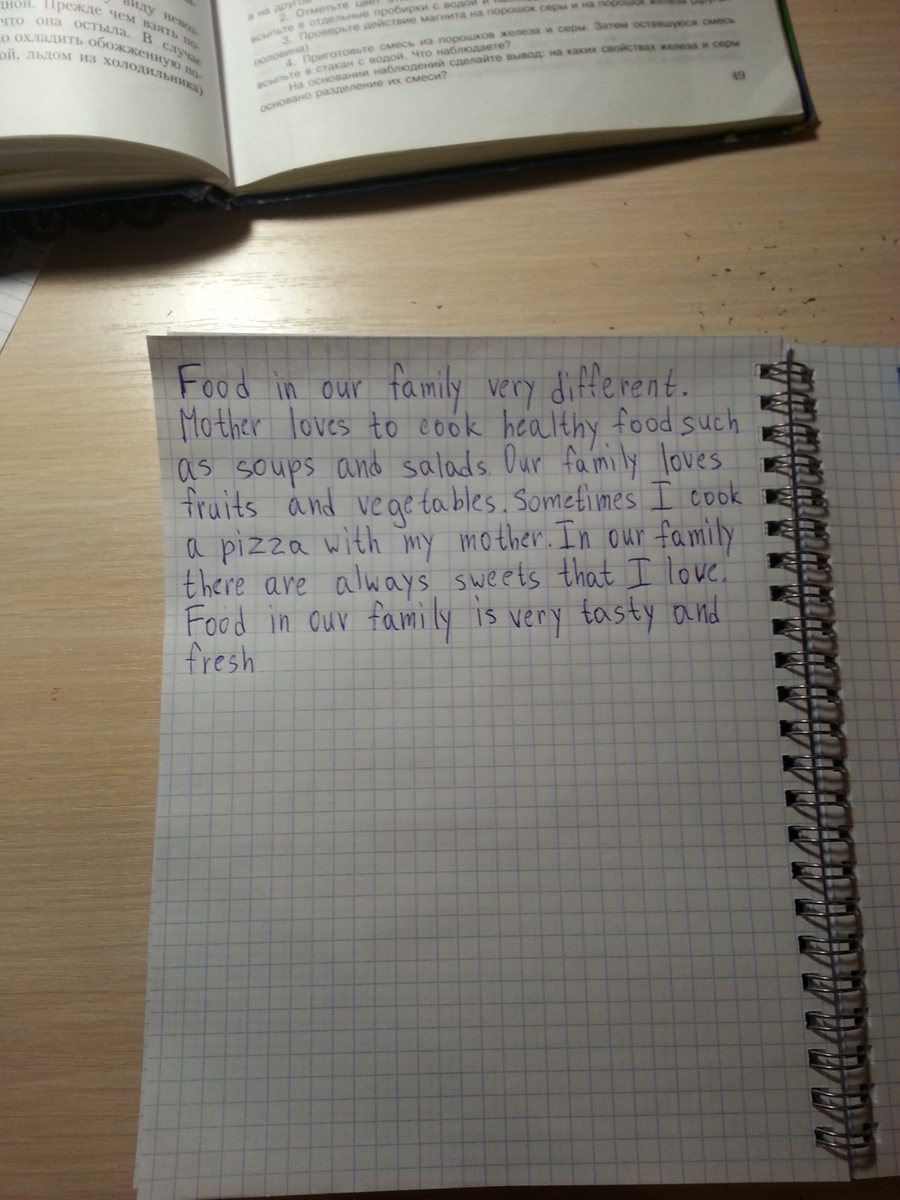 дной. Прежде чем взять
виду
что она остыла. В случае
о охладить обожженную по-
ой, льдом из холодильника)
а на другой
2. Отметьте цвет
всыпьте в отдельные пробирки с водой и
3. Проверьте действие магнита на порошок серы и на порошок железа
половина).
4. Приготовьте смесь из порошков железа и серы. Затем оставшуюся смесь
всыпьте в стакан с водой. Что наблюдаете?
На основании наблюдений сделайте вывод: на каких свойствах железа и серы
основано разделение их смеси?
49
Food in our family very different.
Mother loves to cook healthy food such
as soups and salads. Our family loves
fruits and vegetables. Sometimes I cook
a pizza with my mother. In our family
there are always sweets that I love.
Food in our family is very tasty and
fresh